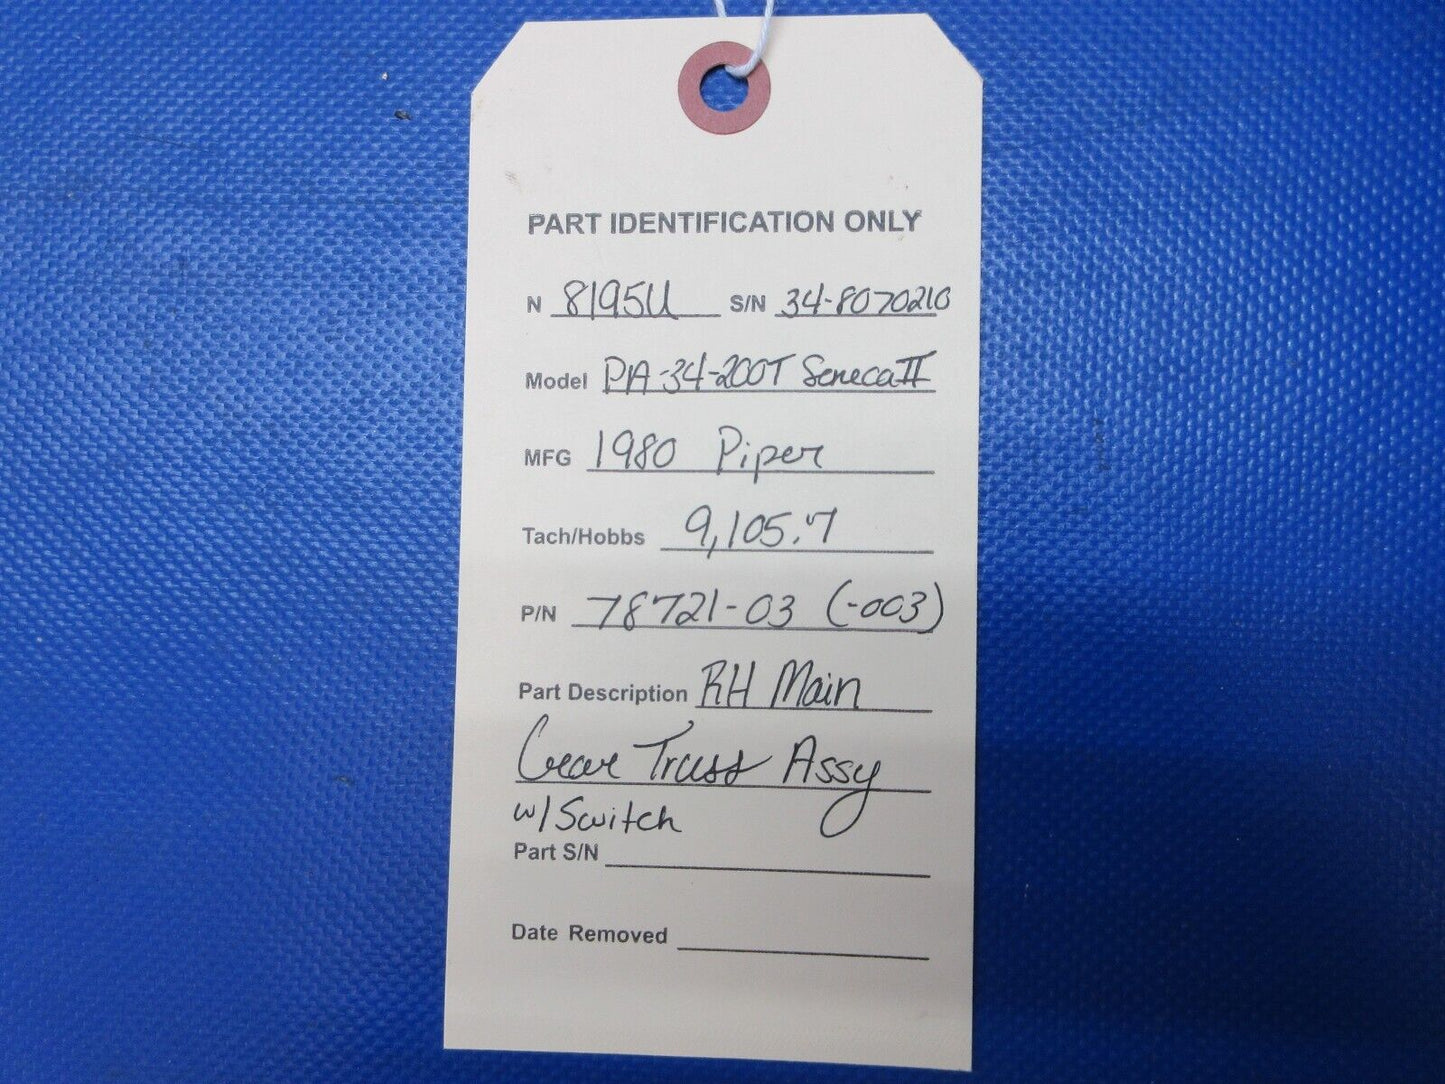 PART IDENTIFICATION ONLY
N 8195U S/N 34-8070210
Model PA-34-200T Seneca II
MFG 1980 Piper
Tach/Hobbs 9,105.7
P/N 78721-03 (-003)
Part Description RH Main
Gear Truss Assy
w/ Switch
Part S/N
Date Removed